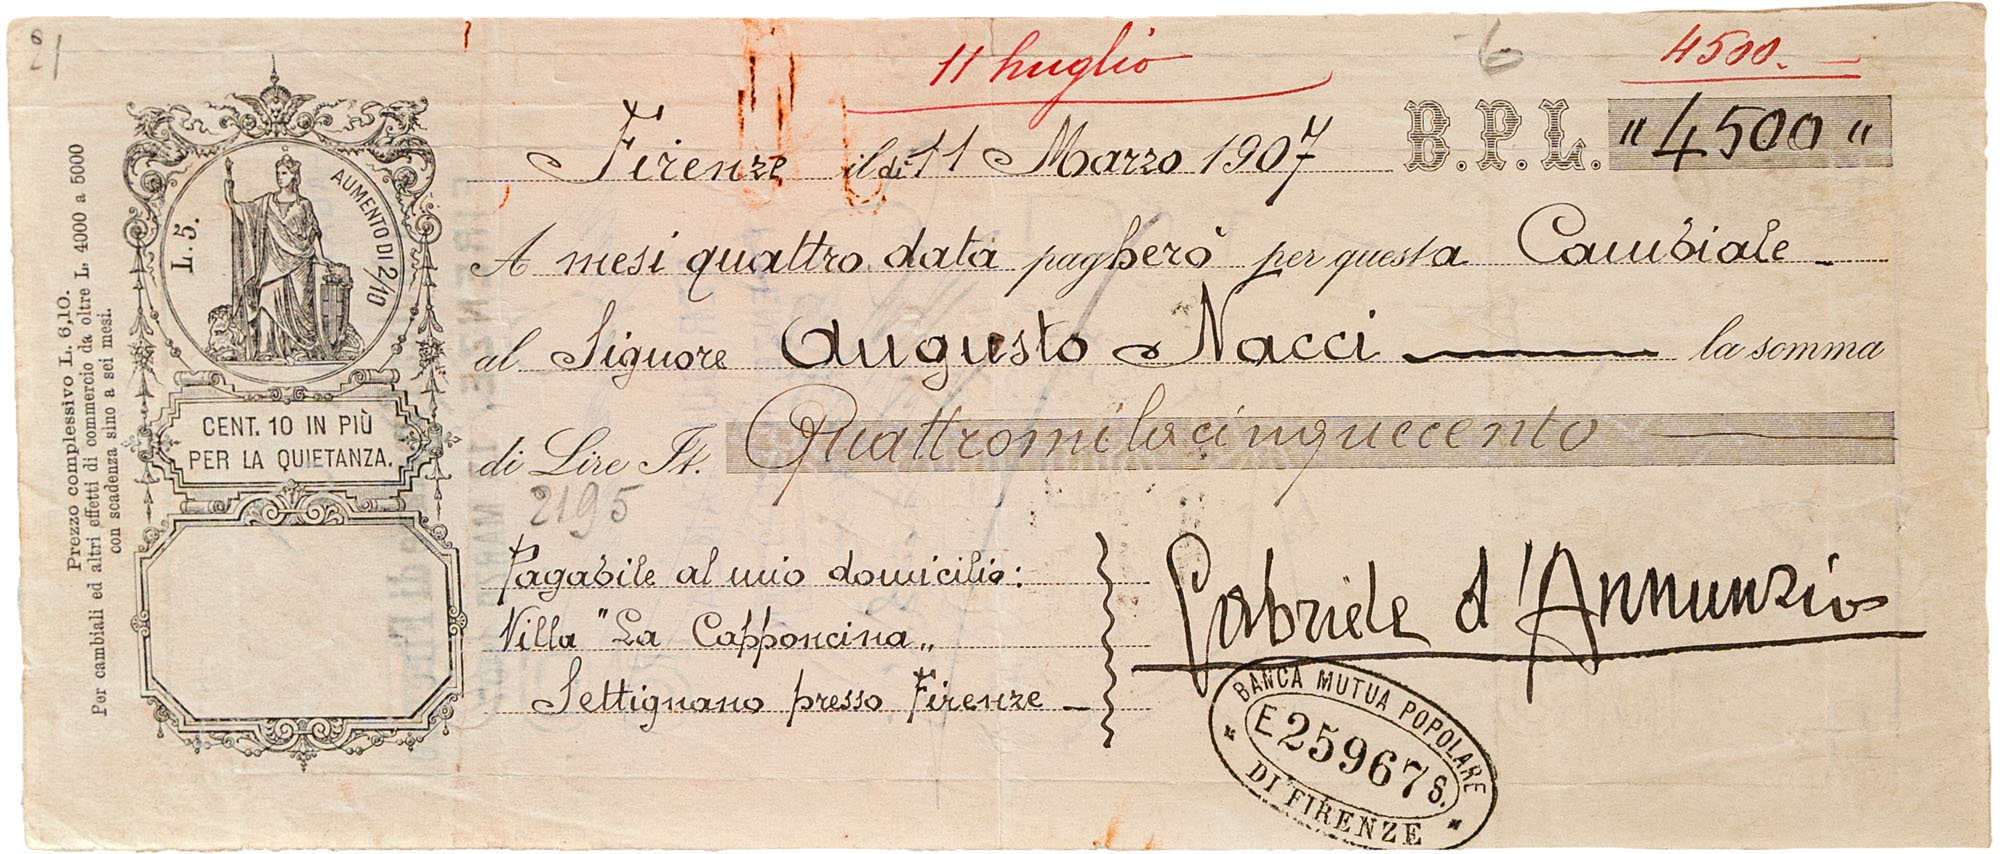 21
11 Luglio
6
4500.
Firenze il dì 11 Marzo 1907 B.P.L. "4500"
A mesi quattro data pagherò per questa Cambiale
al Signore Augusto Nacci la somma
di Lire It. Quattromilacinquecento
2195
Pagabile al mio domicilio:
Villa "La Capponcina"
Settignano presso Firenze
Gabriele d'Annunzio
BANCA MUTUA POPOLARE
E 25967 S.
DI FIRENZE
L. 5.
AUMENTO DI 2/10
CENT. 10 IN PIÙ
PER LA QUIETANZA.
Prezzo complessivo L. 6,10.
Per cambiali ed altri effetti di commercio da oltre L. 4000 a 5000
con scadenza sino a sei mesi.